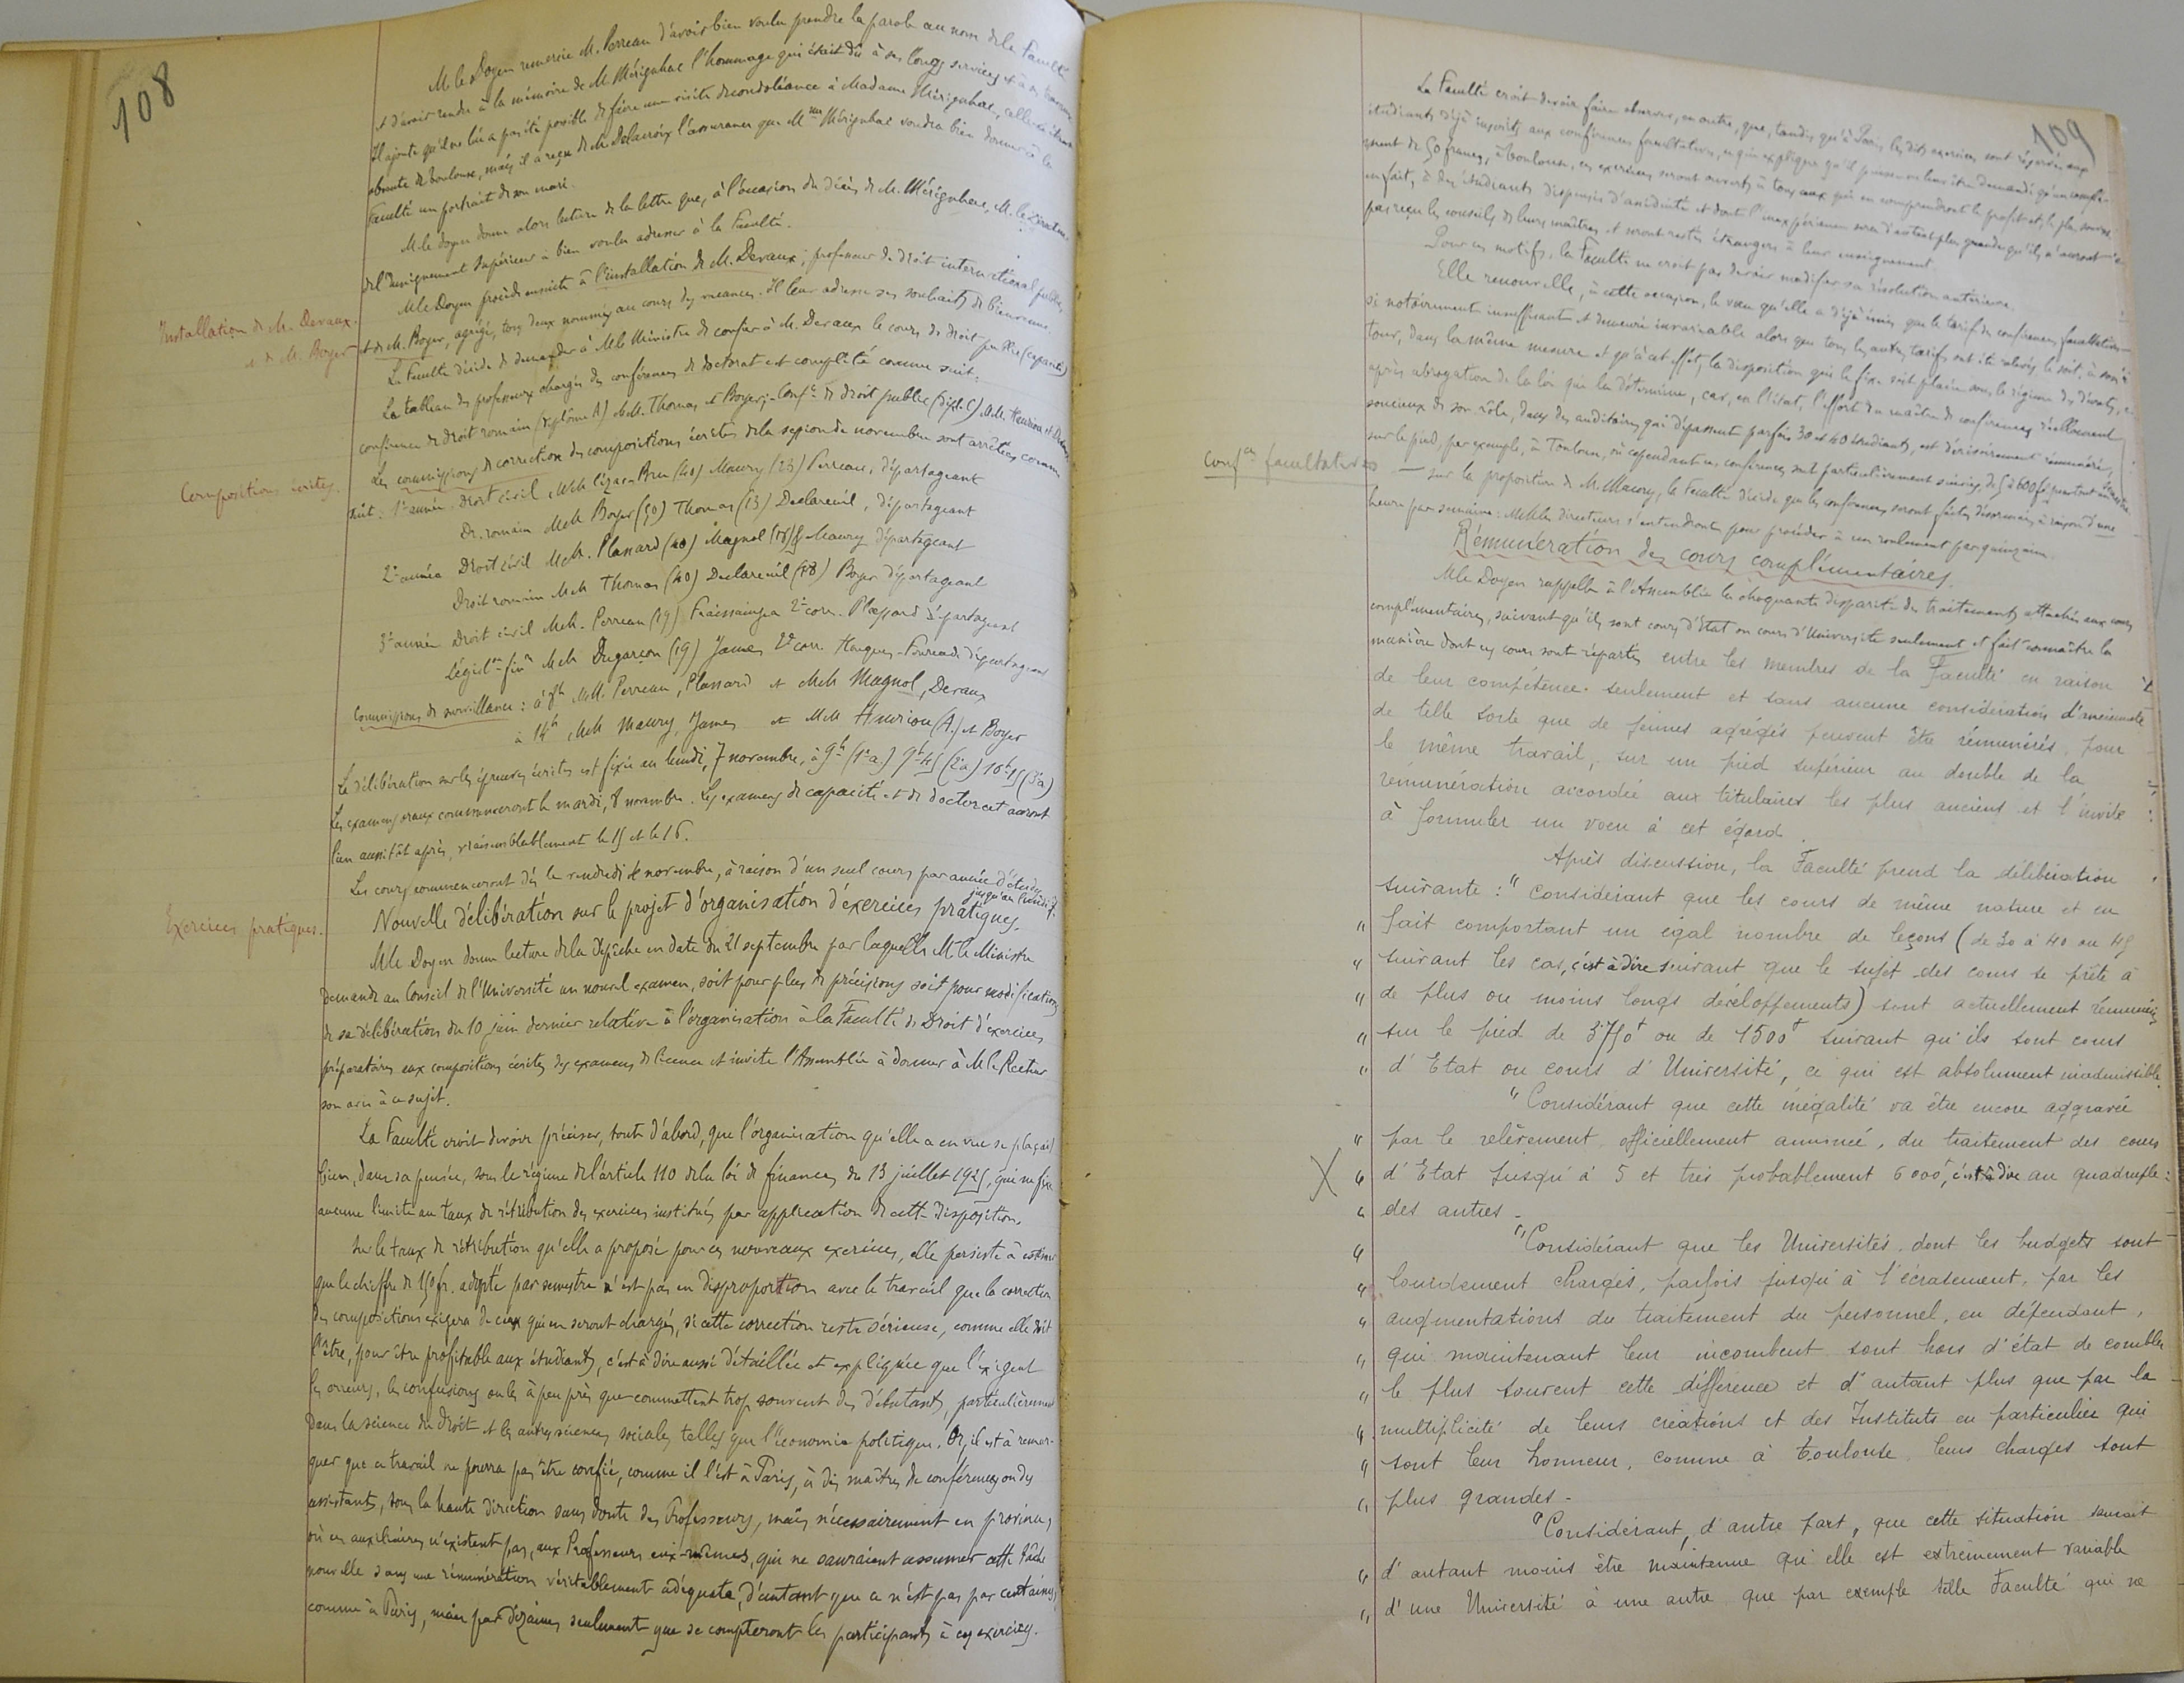 108
M le Doyen remercie M. Perreau d'avoir bien voulu prendre la parole au nom de la Faculté
et d'avoir rendu à la mémoire de M. Mérignhac l'hommage qui était dû à ses longs services et à ses travaux
Il ajoute qu'il ne lui a pas été possible de faire une visite de condoléance à Madame Mérignhac, celle-ci étant
absente de Toulouse, mais il a reçu de M. Delacroix l'assurance que Mme Mérignhac voudra bien donner à la
Faculté un portrait de son mari.
M le doyen donne alors lecture de la lettre que, à l'occasion du décès de M. Mérignhac, M. le Directeur
de l'Enseignement Supérieur a bien voulu adresser à la Faculté.
M le Doyen procède ensuite à l'installation de M. Devaux, professeur de droit international public,
Installation de M. Devaux.
et de M. Boyer
et de M. Boyer, agrégé, tous deux nommés au cours des vacances. Il leur adresse ses souhaits de bienvenue.
La Faculté décide de demander à M le Ministre de confier à M. Devaux le cours de droit public (capacité)
Le tableau des professeurs chargés des conférences de doctorat est complété comme suit:
conférence de droit romain (diplôme A) MM. Thomas et Boyer;- Confce de droit public (dipl. C) MM. Hauriou et Devaux
Les commissions de correction des compositions écrites de la session de novembre sont arrêtées comme
Compositions écrites.
suit: 1e année. Droit civil MM. Cézar-Bru (40) Maury (23) Perreau, départageant
Dr. romain MM. Boyer (50) Thomas (13) Declareuil, départageant
2e année Droit civil MM. Plassard (40) Magnol (18) Maury départageant
Droit romain MM Thomas (40) Declareuil (18) Boyer départageant
3e année Droit civil MM. Perreau (19) Fraissaingea 2e corr. Plassard départageant
Législon finre MM Dugarçon (19) James 2e corr. Houques-Fourcade départageant
Commissions de surveillance: à 8h MM. Perreau, Plassard et MM Magnol, Devaux
à 14h MM Maury, James et MM Hauriou (A.) et Boyer
La délibération sur les épreuves écrites est fixée au lundi, 7 novembre, à 9h (1e a.) 9h45 (2e a) 10h15 (3e a)
Les examens oraux commenceront le mardi, 8 novembre. Les examens de capacité et de doctorat auront
lieu aussitôt après, vraisemblablement le 15 et le 16.
Les cours commenceront dès le vendredi 4 novembre, à raison d'un seul cours par année d'études
jusqu'au lundi 7.
Nouvelle délibération sur le projet d'organisation d'exercices pratiques.
Exercices pratiques.
M le Doyen donne lecture de la dépêche en date du 21 septembre par laquelle M le Ministre
demande au Conseil de l'Université un nouvel examen, soit pour plus de précisions soit pour modifications
de sa délibération du 10 juin dernier relative à l'organisation à la Faculté de Droit d'exercices
préparatoires aux compositions écrites des examens de licence et invite l'Assemblée à donner à M le Recteur
son avis à ce sujet.
La Faculté croit devoir préciser, tout d'abord, que l'organisation qu'elle a en vue se plaçait
bien, dans sa pensée, sous le régime de l'article 110 de la loi de finances du 13 juillet 1925, qui ne fixe
aucune limite au taux de rétribution des exercices institués par application de cette disposition.
Sur le taux de rétribution qu'elle a proposé pour ces nouveaux exercices, elle persiste à estimer
que le chiffre de 150 fr. adopté par semestre n'est pas en disproportion avec le travail que la correction
des compositions exigera de ceux qui en seront chargés, si cette correction reste sérieuse, comme elle doit
l'être, pour être profitable aux étudiants, c'est à dire aussi détaillée et expliquée que l'exigent
les erreurs, les confusions ou les à peu près que commettent trop souvent des débutants, particulièrement
dans la science du droit et les autres sciences sociales telles que l'économie politique. Or, il est à remar-
quer que ce travail ne pourra pas être confié, comme il l'est à Paris, à des maîtres de conférences ou des
assistants, sous la haute direction sans doute des Professeurs, mais nécessairement en province,
où ces auxiliaires n'existent pas, aux Professeurs eux-mêmes, qui ne sauraient assumer cette tâche
nouvelle sans une rémunération véritablement adéquate, d'autant que ce n'est pas par centaines,
comme à Paris, mais par dizaines seulement que se compteront les participants à ces exercices.
109
La Faculté croit devoir faire observer, en outre, que, tandis qu'à Paris, les dits exercices sont réservés aux
étudiants déjà inscrits aux conférences facultatives, ce qui explique qu'il puisse ne leur être demandé qu'un complé-
ment de 50 francs, à Toulouse, ces exercices seront ouverts à tous ceux qui en comprendront le profit et, le plus souvent
en fait, à des étudiants dispensés d'assiduité et dont l'inexpérience sera d'autant plus grande qu'ils n'auront
pas reçu les conseils de leurs maîtres et seront restés étrangers à leur enseignement.
Pour ces motifs, la Faculté ne croit pas devoir modifier sa résolution antérieure.
Elle renouvelle, à cette occasion, le vœu qu'elle a déjà émis que le tarif des conférences facultatives
si notoirement insuffisant et demeuré invariable alors que tous les autres tarifs ont été relevés, le soit, à son
tour, dans la même mesure et qu'à cet effet, la disposition qui le fixe soit placée sous le régime des décrets,
après abrogation de la loi qui la détermine, car, en l'état, l'effort du maître de conférences réellement
soucieux de son rôle, dans des auditoires qui dépassent parfois 30 et 40 étudiants, est dérisoirement rémunéré,
sur le pied, par exemple, à Toulouse, où cependant ces conférences sont particulièrement suivies, de 5 à 600 fr pour tout un semestre.
Confces facultatives
— Sur la proposition de M. Maury, la Faculté décide que les conférences seront faites désormais à raison d'une
heure par semaine: MM les directeurs s'entendront pour procéder à un roulement par quinzaine.
Rémunération des cours complémentaires.
M le Doyen rappelle à l'Assemblée la choquante disparité des traitements attachés aux cours
complémentaires, suivant qu'ils sont cours d'État ou cours d'Université seulement et fait connaître la
manière dont ces cours sont répartis entre les membres de la Faculté en raison
de leur compétence seulement et sans aucune considération d'ancienneté
de telle sorte que de jeunes agrégés peuvent être rémunérés, pour
le même travail, sur un pied supérieur au double de la
rémunération accordée aux titulaires les plus anciens et l'invite
à formuler un vœu à cet égard.
Après discussion, la Faculté prend la délibération
suivante: " Considérant que les cours de même nature et en
" fait comportant un égal nombre de leçons (de 30 à 40 ou 45
" suivant les cas, c'est à dire suivant que le sujet des cours se prête à
" de plus ou moins longs développements) sont actuellement rémunérés
" sur le pied de 3750f ou de 1500f suivant qu'ils sont cours
" d'Etat ou cours d'Université, ce qui est absolument inadmissible.
" Considérant que cette inégalité va être encore aggravée
" par le relèvement, officiellement annoncé, du traitement des cours
X " d'Etat jusqu'à 5 et très probablement 6000f, c'est à dire au quadruple
" des autres -
" "Considérant que les Universités, dont les budgets sont
" lourdement chargés, parfois jusqu'à l'écrasement, par les
" augmentations du traitement du personnel, en dépendant,
" qui maintenant leur incombent sont hors d'état de combler
" le plus souvent cette différence et d'autant plus que par la
" multiplicité de leurs créations et des Instituts en particulier qui
" sont leur honneur, comme à Toulouse, leurs charges sont
" plus grandes -
"Considérant, d'autre part, que cette situation saurait
" d'autant moins être maintenue qu'elle est extrêmement variable
" d'une Université à une autre que par exemple telle Faculté qui ne